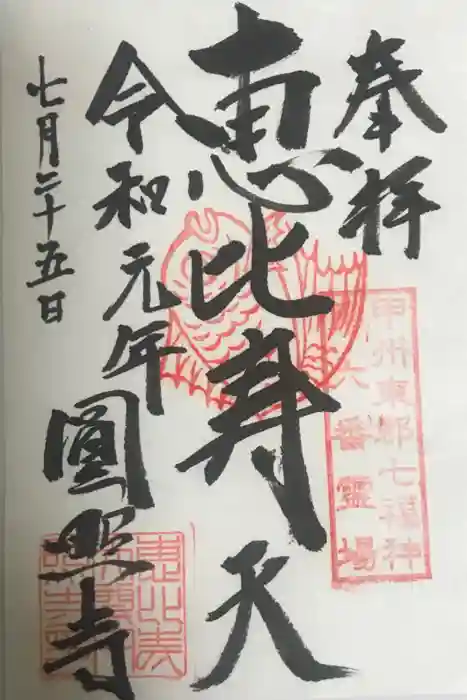 奉拝
甲州東郡七福神
六番霊場
恵比寿天
令和元年
七月二十五日
圓照寺